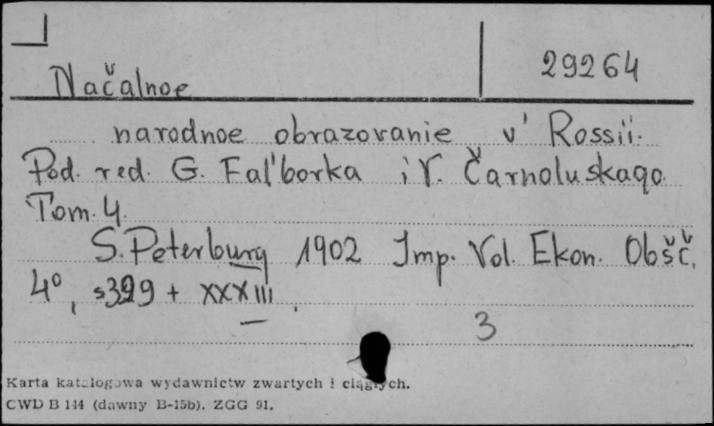 29264
Načalnoe
narodnoe obrazovanie v' Rossii.
Pod. red. G. Fal'borka i V. Čarnoluskago
Tom. 4.
S. Peterburg 1902 Imp. Vol. Ekon. Obšč.
4°, s399 + XXXIII.
3
Karta katalogowa wydawnictw zwartych i ciągłych.
CWD B 144 (dawny B-15b). ZGG 91.